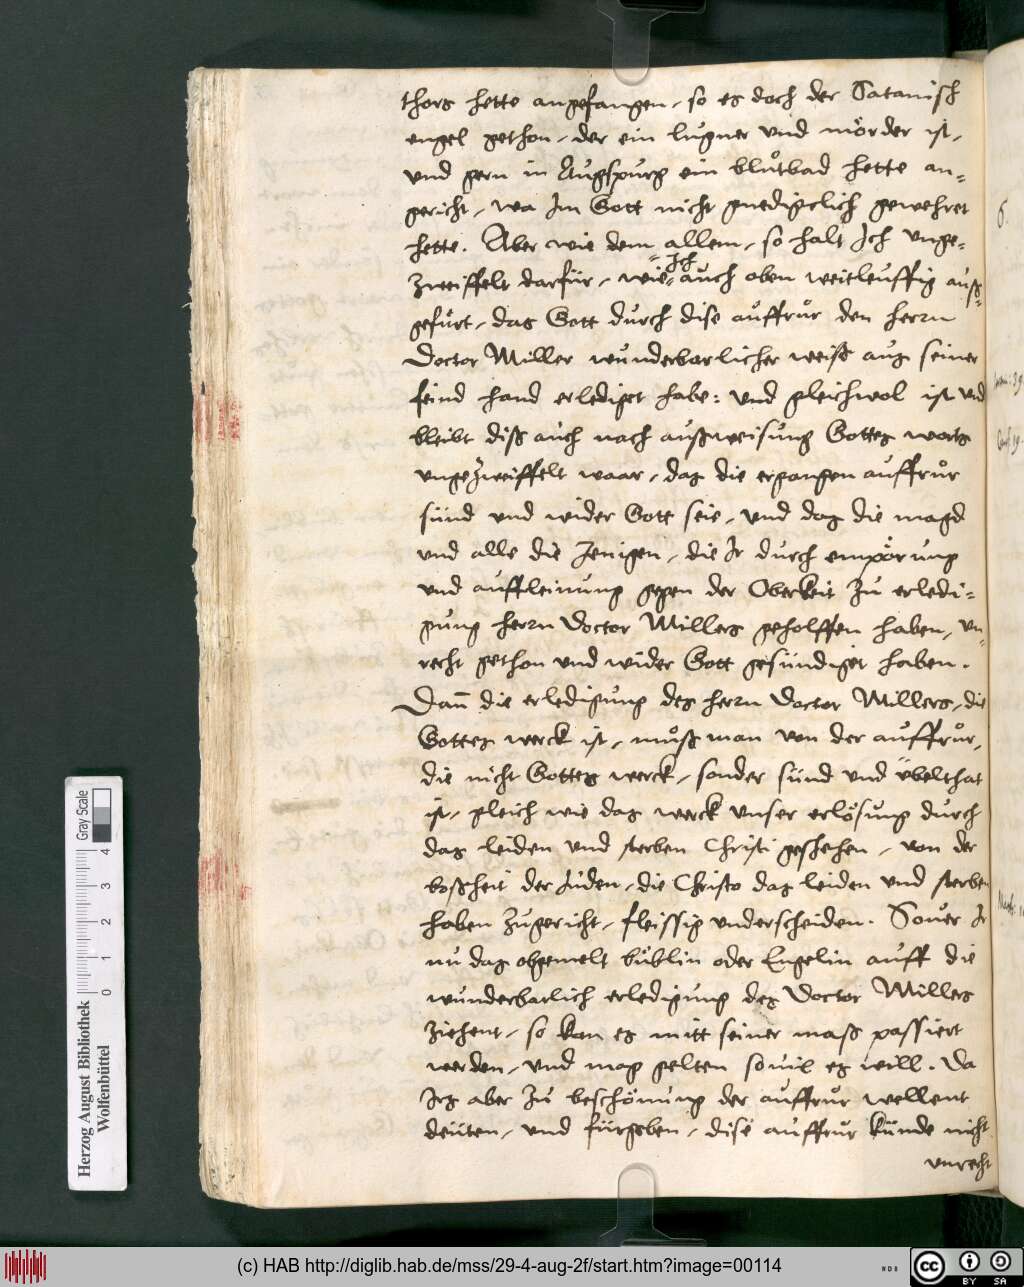 thors hette angefangen, so es doch der Satanisch
engel gethon, der ein lugner vnd mörder ist,
vnd gern in Augspurg ein blůtbad hette an-
gericht, wa Im Gott nicht gnedigclich gewehret
hette. Aber wie dem allem, so halt Ich vnge-
zweiffelt darfür, wie Ich auch oben weitleuffig auß-
gefürt, das Gott durch dise auffrůr den herrn
Doctor Miller wunderbarlicher weiß aus seiner
feind hand erlediget habe: vnd gleichwol ist vnd
bleibt diß auch nach außweisung Gottes worts
vngezweiffelt waar, das die ergangen auffrůr
sünd vnd wider Gott seie, vnd das die magd
vnd alle die Jenigen, die Ir durch empörung
vnd auffleinung gegen der Oberkeit zu erledi-
gung herrn Doctor Millers geholffen haben, vn-
recht gethon vnd wider Gott gesündiget haben.
Dañ die erledigung des herrn Doctor Millers, die
Gottes werck ist, muß man von der auffrůr,
die nicht Gottes werck, sonder sünd vnd übelthat
ist, gleich wie das werck vnser erlösung durch
das leiden vnd sterben Christi geschehen, von der
boßheit der Juden, die Christo das leiden vnd sterben
haben zugericht, fleissig vnderscheiden. Souer Ir
nu das obgemelt büblin oder Engelin auff die
wunderbarlich erledigung des Doctor Millers
ziehent, so kan es mitt seiner maß passiert
werden, vnd mag gelten souil es will. Da
Irs aber zu beschönung der auffrůr wellent
deuten, vnd fürgeben, dise auffrůr künde nicht
vnrecht
6.
29
19.
Herzog August Bibliothek
Wolfenbüttel
0 1 2 3 4
Gray Scale
(c) HAB http://diglib.hab.de/mss/29-4-aug-2f/start.htm?image=00114
WDB
cc BY SA